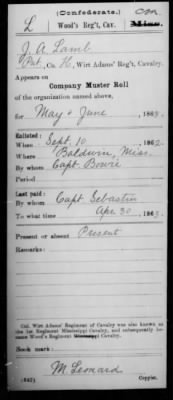 (Confederate.)
L Wood's Reg't, Cav. Miss.
J. A. Lamb
Pvt, Co. H, Wirt Adams' Reg't, Cavalry.
Appears on
Company Muster Roll
of the organization named above,
for May & June, 1863.
Enlisted:
When Sept. 10, 1862.
Where Baldwin, Miss.
By whom Capt. Bowie
Period
Last paid:
By whom Capt Sebastin
To what time Apr 30, 1863.
Present or absent Present
Remarks:
Col. Wirt Adams' Regiment of Cavalry was also known as
the 1st Regiment Mississippi Cavalry, and subsequently be-
came Wood's Regiment Mississippi Cavalry.
Book mark:
M. Leonard
Copyist.